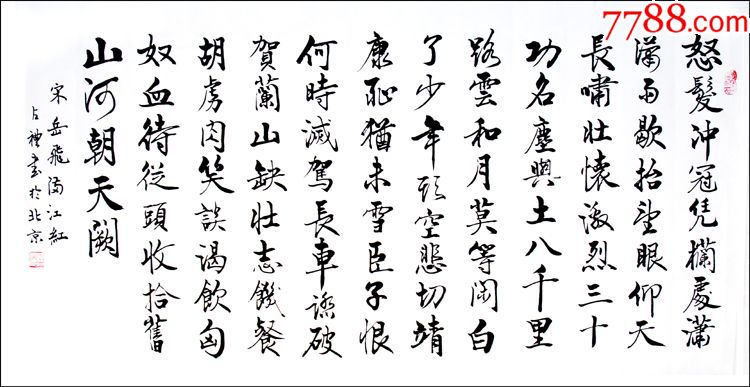 怒髮沖冠凭欄處瀟
瀟雨歇抬望眼仰天
長嘯壯懷激烈三十
功名塵與土八千里
路雲和月莫等閑白
了少年頭空悲切靖
康恥猶未雪臣子恨
何時滅駕長車踏破
賀蘭山缺壯志饑餐
胡虜肉笑談渴飲匈
奴血待從頭收拾舊
山河朝天闕
宋岳飛滿江紅
占禮書於北京
7788.com